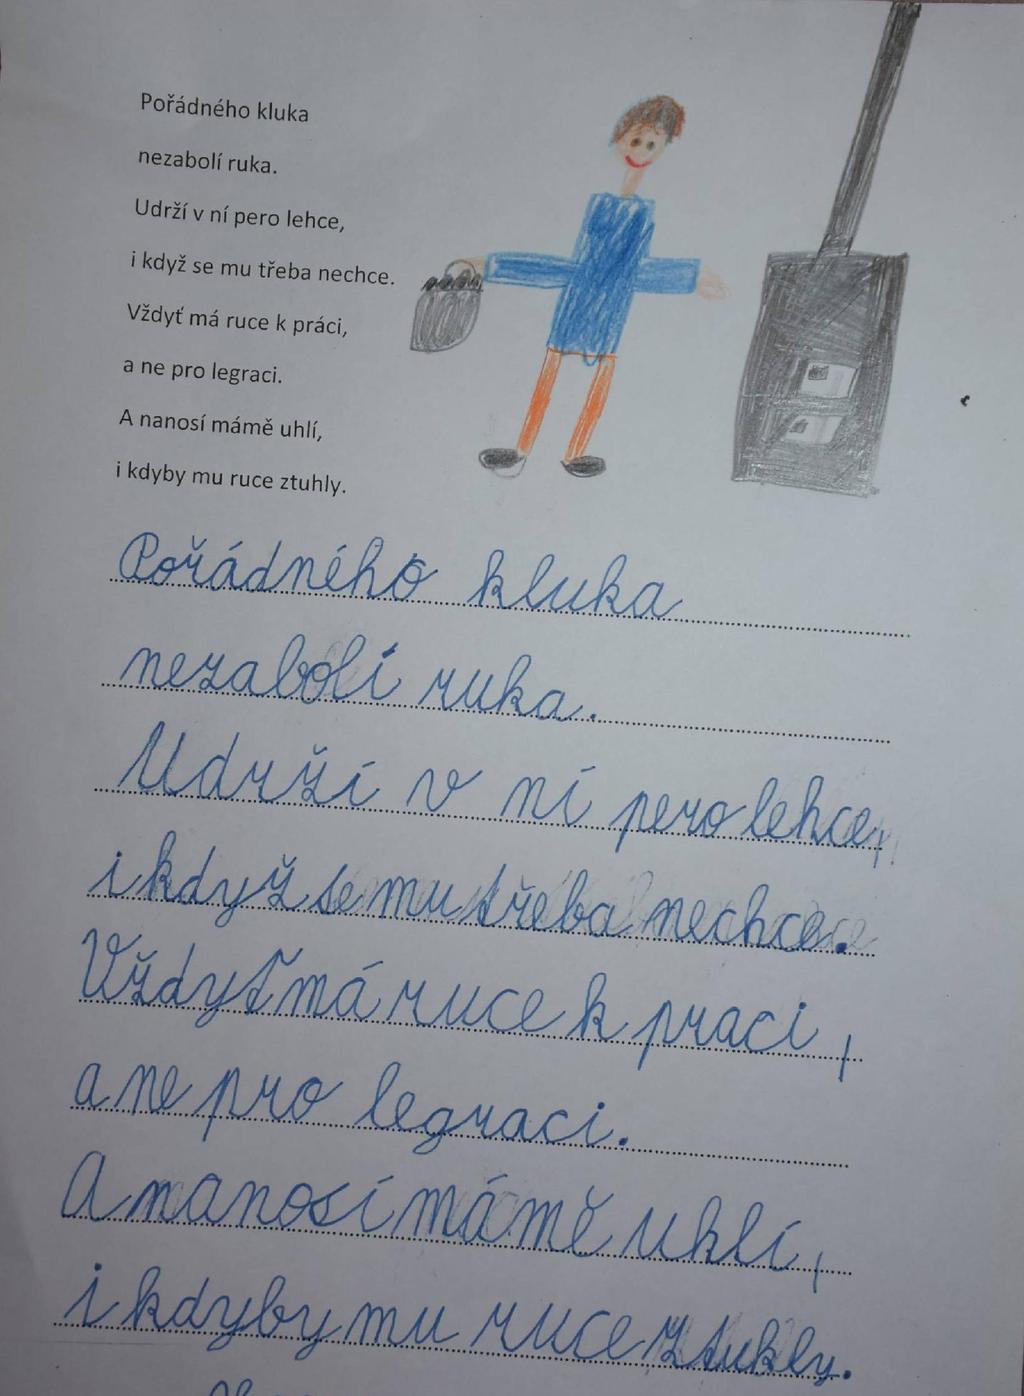 Pořádného kluka
nezabolí ruka.
Udrží v ní pero lehce,
i když se mu třeba nechce.
Vždyť má ruce k práci,
a ne pro legraci.
A nanosí mámě uhlí,
i kdyby mu ruce ztuhly.
Pořádného kluka
nezabolí ruka.
Udrží v ní pero lehce,
i když se mu třeba nechce.
Vždyť má ruce k praci,
a ne pro legraci.
A nanosí mámě uhlí,
i kdyby mu ruce ztuhly.